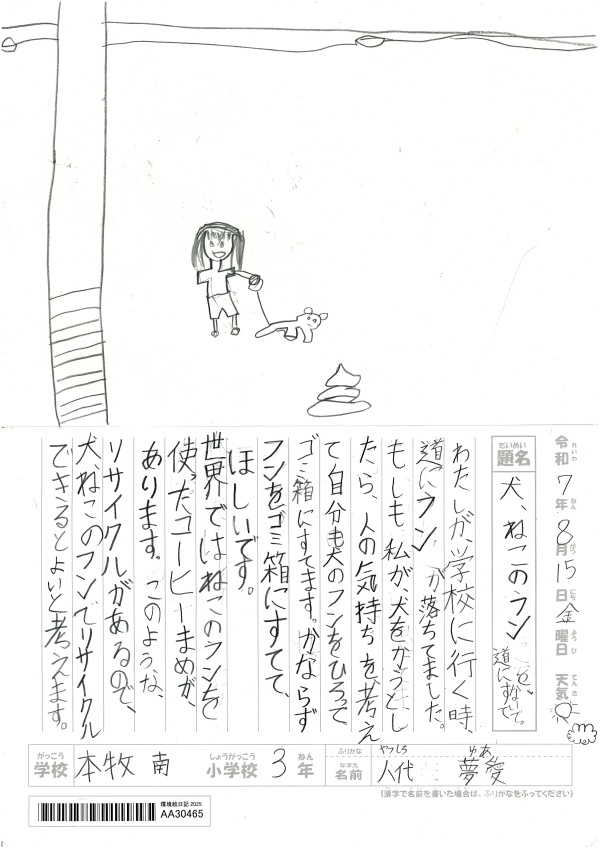 令和7年8月15日金曜日 天気
れいわ ねん がつ にち ようび てんき
だいめい
題名
犬、ねこのフンを、道にすないで。
わたしが、学校に行く時、
道にフンが落ちてました。
もしも、私が、犬をかうとし
たら、人の気持ちを、考え
て自分も犬のフンをひろって
ゴミ箱にすてます。かならず
フンをゴミ箱にすてて、
ほしいです。
世界ではねこのフンを
使ったコーヒーまめが、
あります。このような、
リサイクルがあるので、
犬、ねこのフンでリサイクル
できるとよいと考えます。
がっこう しょうがっこう ねん ふりがな やつしろ ゆあ
学校 本牧南 小学校 3年 なまえ 名前 八代 夢愛
(漢字で名前を書いた場合は、ふりがなをふってください)
環境絵日記 2025
AA30465